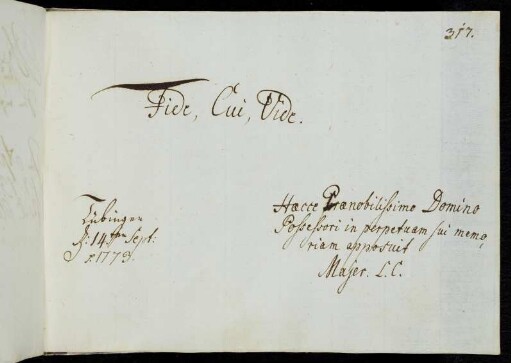 317.
Fide, Cui, Vide.
Tübingen
d: 14ten Sept:
1773.
Hacce Prænobilissimo Domino
Possessori in perpetuam sui memo,
riam apposuit
Majer. L.C.